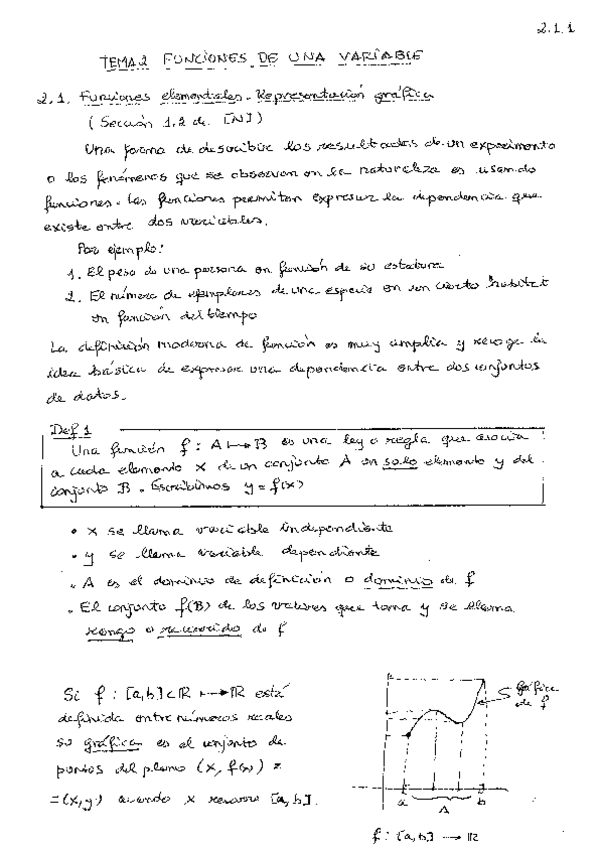 2.1.1
TEMA 2 FUNCIONES DE UNA VARIABLE
2.1. Funciones elementales. Representación gráfica
(Sección 1.2 de [N])
Una forma de describir los resultados de un experimento
o los fenómenos que se observan en la naturaleza es usando
funciones. Las funciones permiten expresar la dependencia que
existe entre dos variables.
Por ejemplo:
1. El peso de una persona en función de su estatura
2. El número de ejemplares de una especie en un cierto habitat
en función del tiempo
La definición moderna de función es muy amplia y recoge la
idea básica de expresar una dependencia entre dos conjuntos
de datos.
Def 1
Una función f : A ⟼ B es una ley o regla que asocia
a cada elemento x de un conjunto A un solo elemento y del
conjunto B. Escribimos y = f(x)
• x se llama variable independiente
• y se llama variable dependiente
• A es el dominio de definición o dominio de f
• El conjunto f(B) de los valores que toma y se llama
rango o recorrido de f
Si f : [a,b] ⊂ ℝ ⟼ ℝ está
definida entre números reales
su gráfica es el conjunto de
puntos del plano (x, f(x)) =
= (x, y) cuando x recorre [a,b].
gráfica
de f
a b
A
f : [a,b] → ℝ